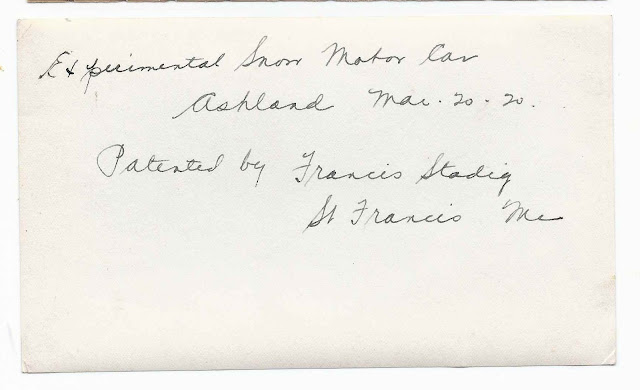 Experimental Snow Motor Car
Ashland Mar. 20 - 20.
Patented by Francis Stadig
St Francis Me